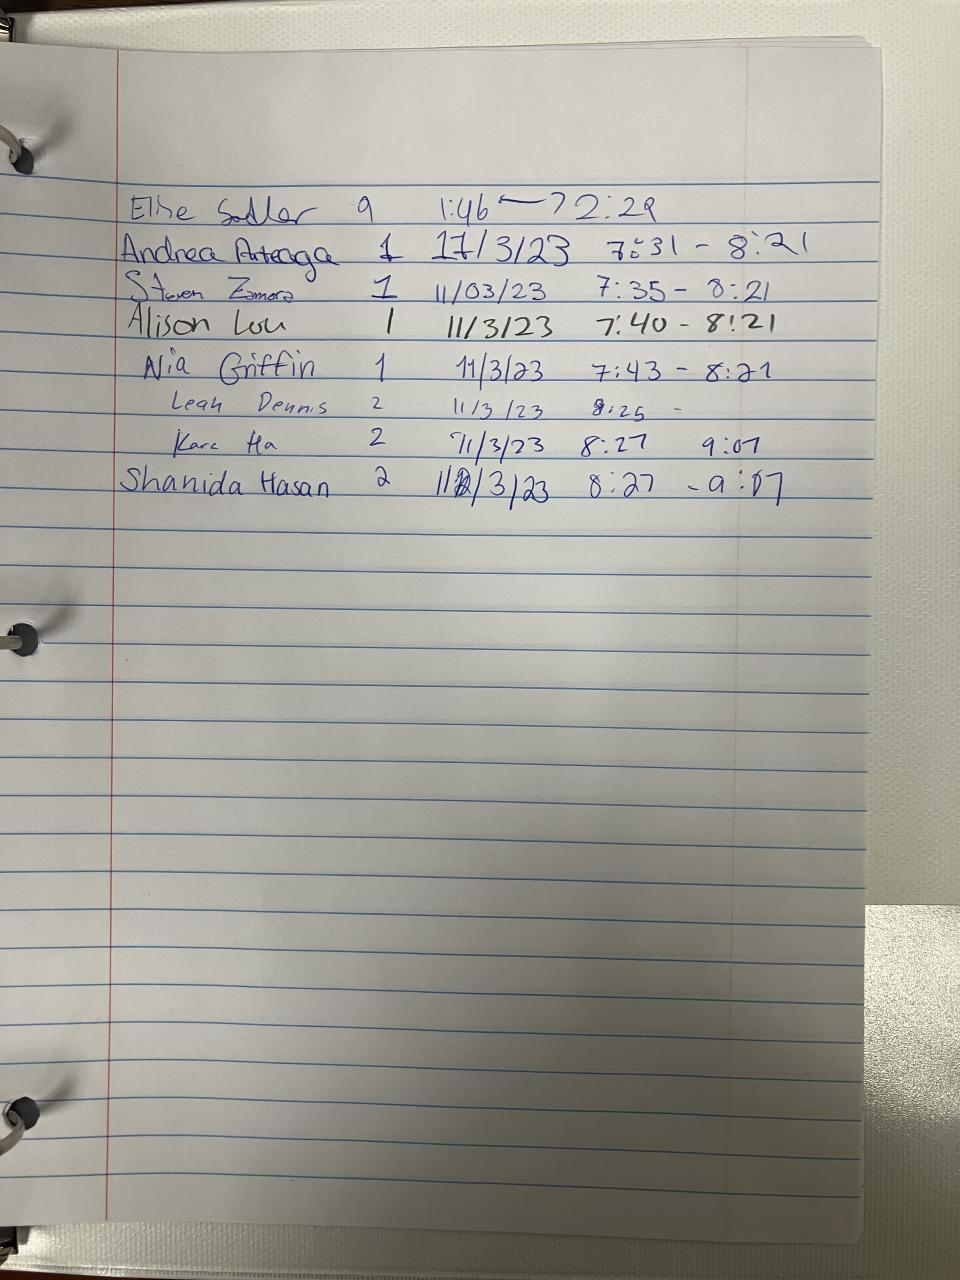 Elise Sadler 9 1:46 → 2:29
Andrea Arteaga 1 11/3/23 7:31 - 8:21
Steven Zamora 1 11/03/23 7:35 - 8:21
Alison Lou 1 11/3/23 7:40 - 8:21
Nia Griffin 1 11/3/23 7:43 - 8:21
Leah Dennis 2 11/3/23 8:25 -
Kara Ha 2 11/3/23 8:27 9:07
Shanida Hasan 2 11/3/23 8:27 - 9:07